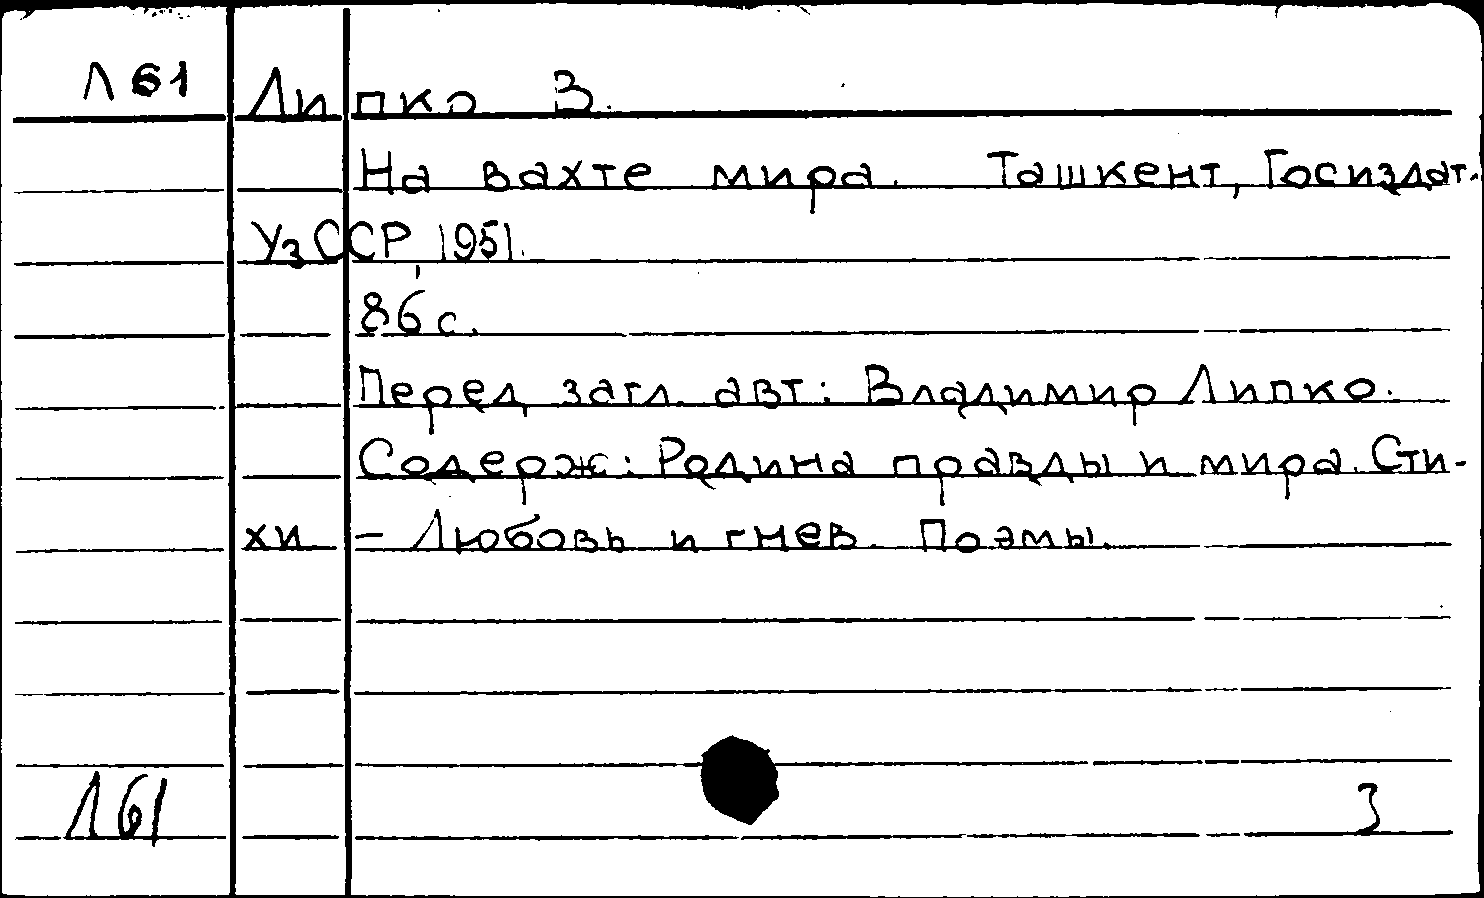 Л 61
Липко В.
На вахте мира. Ташкент, Госиздат.
УзССР, 1951.
86 с.
Перед загл. авт: Владимир Липко.
Содерж: Родина правды и мира. Сти-
хи – Любовь и гнев. Поэмы.
Л 61
3